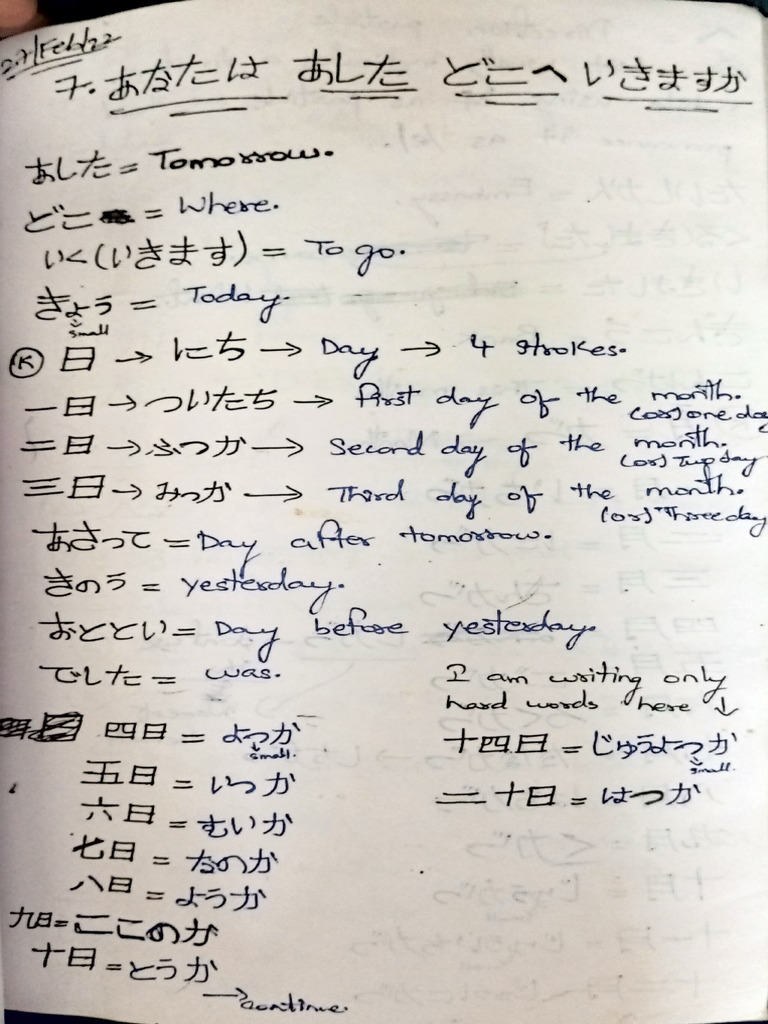 27/Feb/22
7. あなたは あした どこへ いきますか
あした = Tomorrow.
どこ = Where.
いく(いきます) = To go.
きょう = Today.
small
K 日 → にち → Day → 4 strokes.
一日 → ついたち → First day of the month.
(or) one day
二日 → ふつか → Second day of the month.
(or) Two day
三日 → みっか → Third day of the month.
(or) Three day
あさって = Day after tomorrow.
きのう = yesterday.
おととい = Day before yesterday.
でした = was.
I am writing only
hard words here ↓
四日 = よっか
small.
五日 = いつか
六日 = むいか
七日 = なのか
八日 = ようか
九日 = ここのか
十日 = とうか
→ continue.
十四日 = じゅうよっか
small.
二十日 = はつか